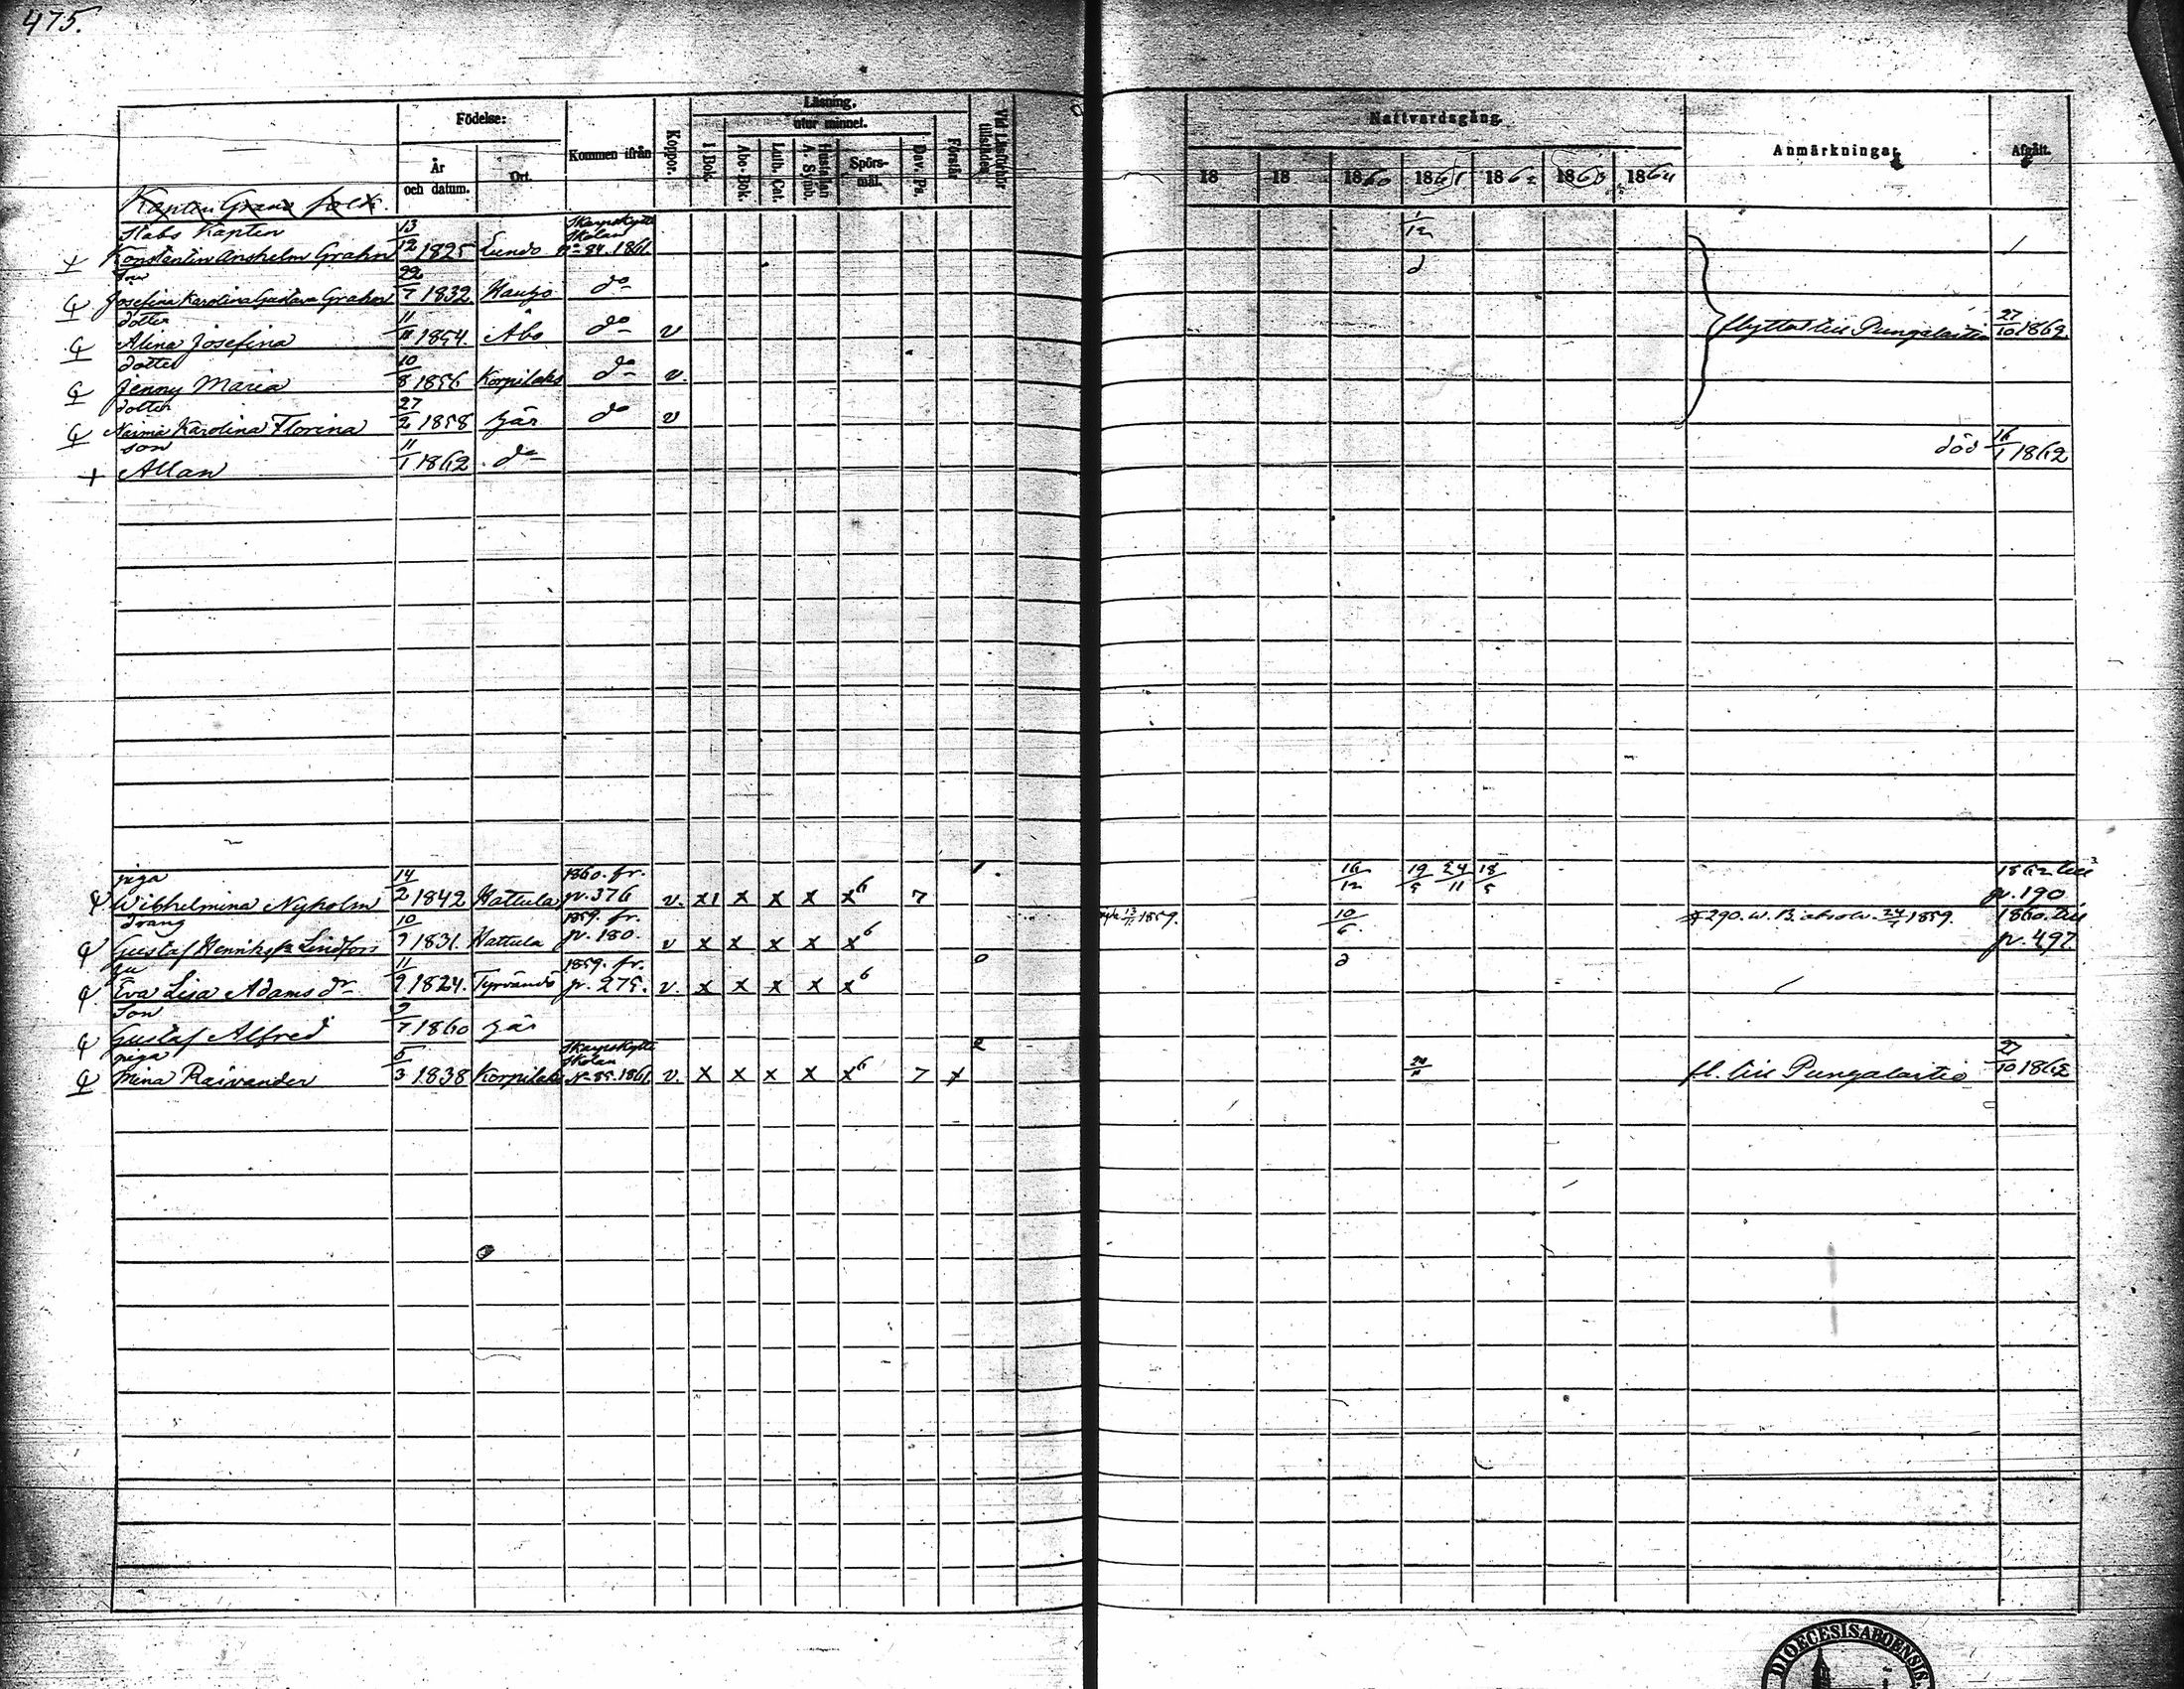 475.
Födelse:
År och datum.
Ort.
Kommen ifrån
Koppor.
Läsning.
utur minnet.
I Bok.
Abc-Bok.
Luth. Cat.
Hustaflan A. Symb.
Spörs-mål.
Dav. Ps.
Förstår
Vid Läseförhör tillstädes:
Nattvardsgång.
18 18 1860 1861 1862 1863 1864
Anmärkningar.
Afgått.
Kapten Grans folk.
Stabs Kapten 13 Skarpskytte Skolan 1/12
Konstantin Anshelm Grahn 12 1825 Lundo No 84. 1861.
Fru 22
Josefina Karolina Gustava Grahn 7 1832 Hauho do
dotter 11
Alina Josefina 11 1854. Åbo do v flyttat till Pungalaitio 27/10 1862
dotter 10
Jenny Maria 8 1856 Korpilaks do v.
dotter 27
Naimi Karolina Florina 2 1858 här do v
son 11
Allan 1 1862 do död 16/1 1862
piga 14 1860. fr. 1 16/12 19/5 24/11 18/5 1862 till
Wilhelmina Nyholm 2 1842 Hattula p. 376 v. x1 x x x x6 7 p. 190
dräng 10 1859. fr. 1859. 10/6. 290. w. B. absolv. 24/7 1859. 1860. till
Gustaf Henriksson Lindfors 9 1831. Hattula p. 180. v x x x x x6 p. 497
hu 11 1859. fr. 0
Eva Lisa Adamsdr 9 1824. Tyrvändö p. 275. v. x x x x x6
Son 9
Gustaf Alfred 7 1860 här
piga 5 Skarpskytte Skolan 2
Mina Raivander 3 1838 Korpilaks No 85. 1861. v. x x x x x6 7 x fl. till Pungalaitio 27/10 1862
DIOECESIS ABOENSIS